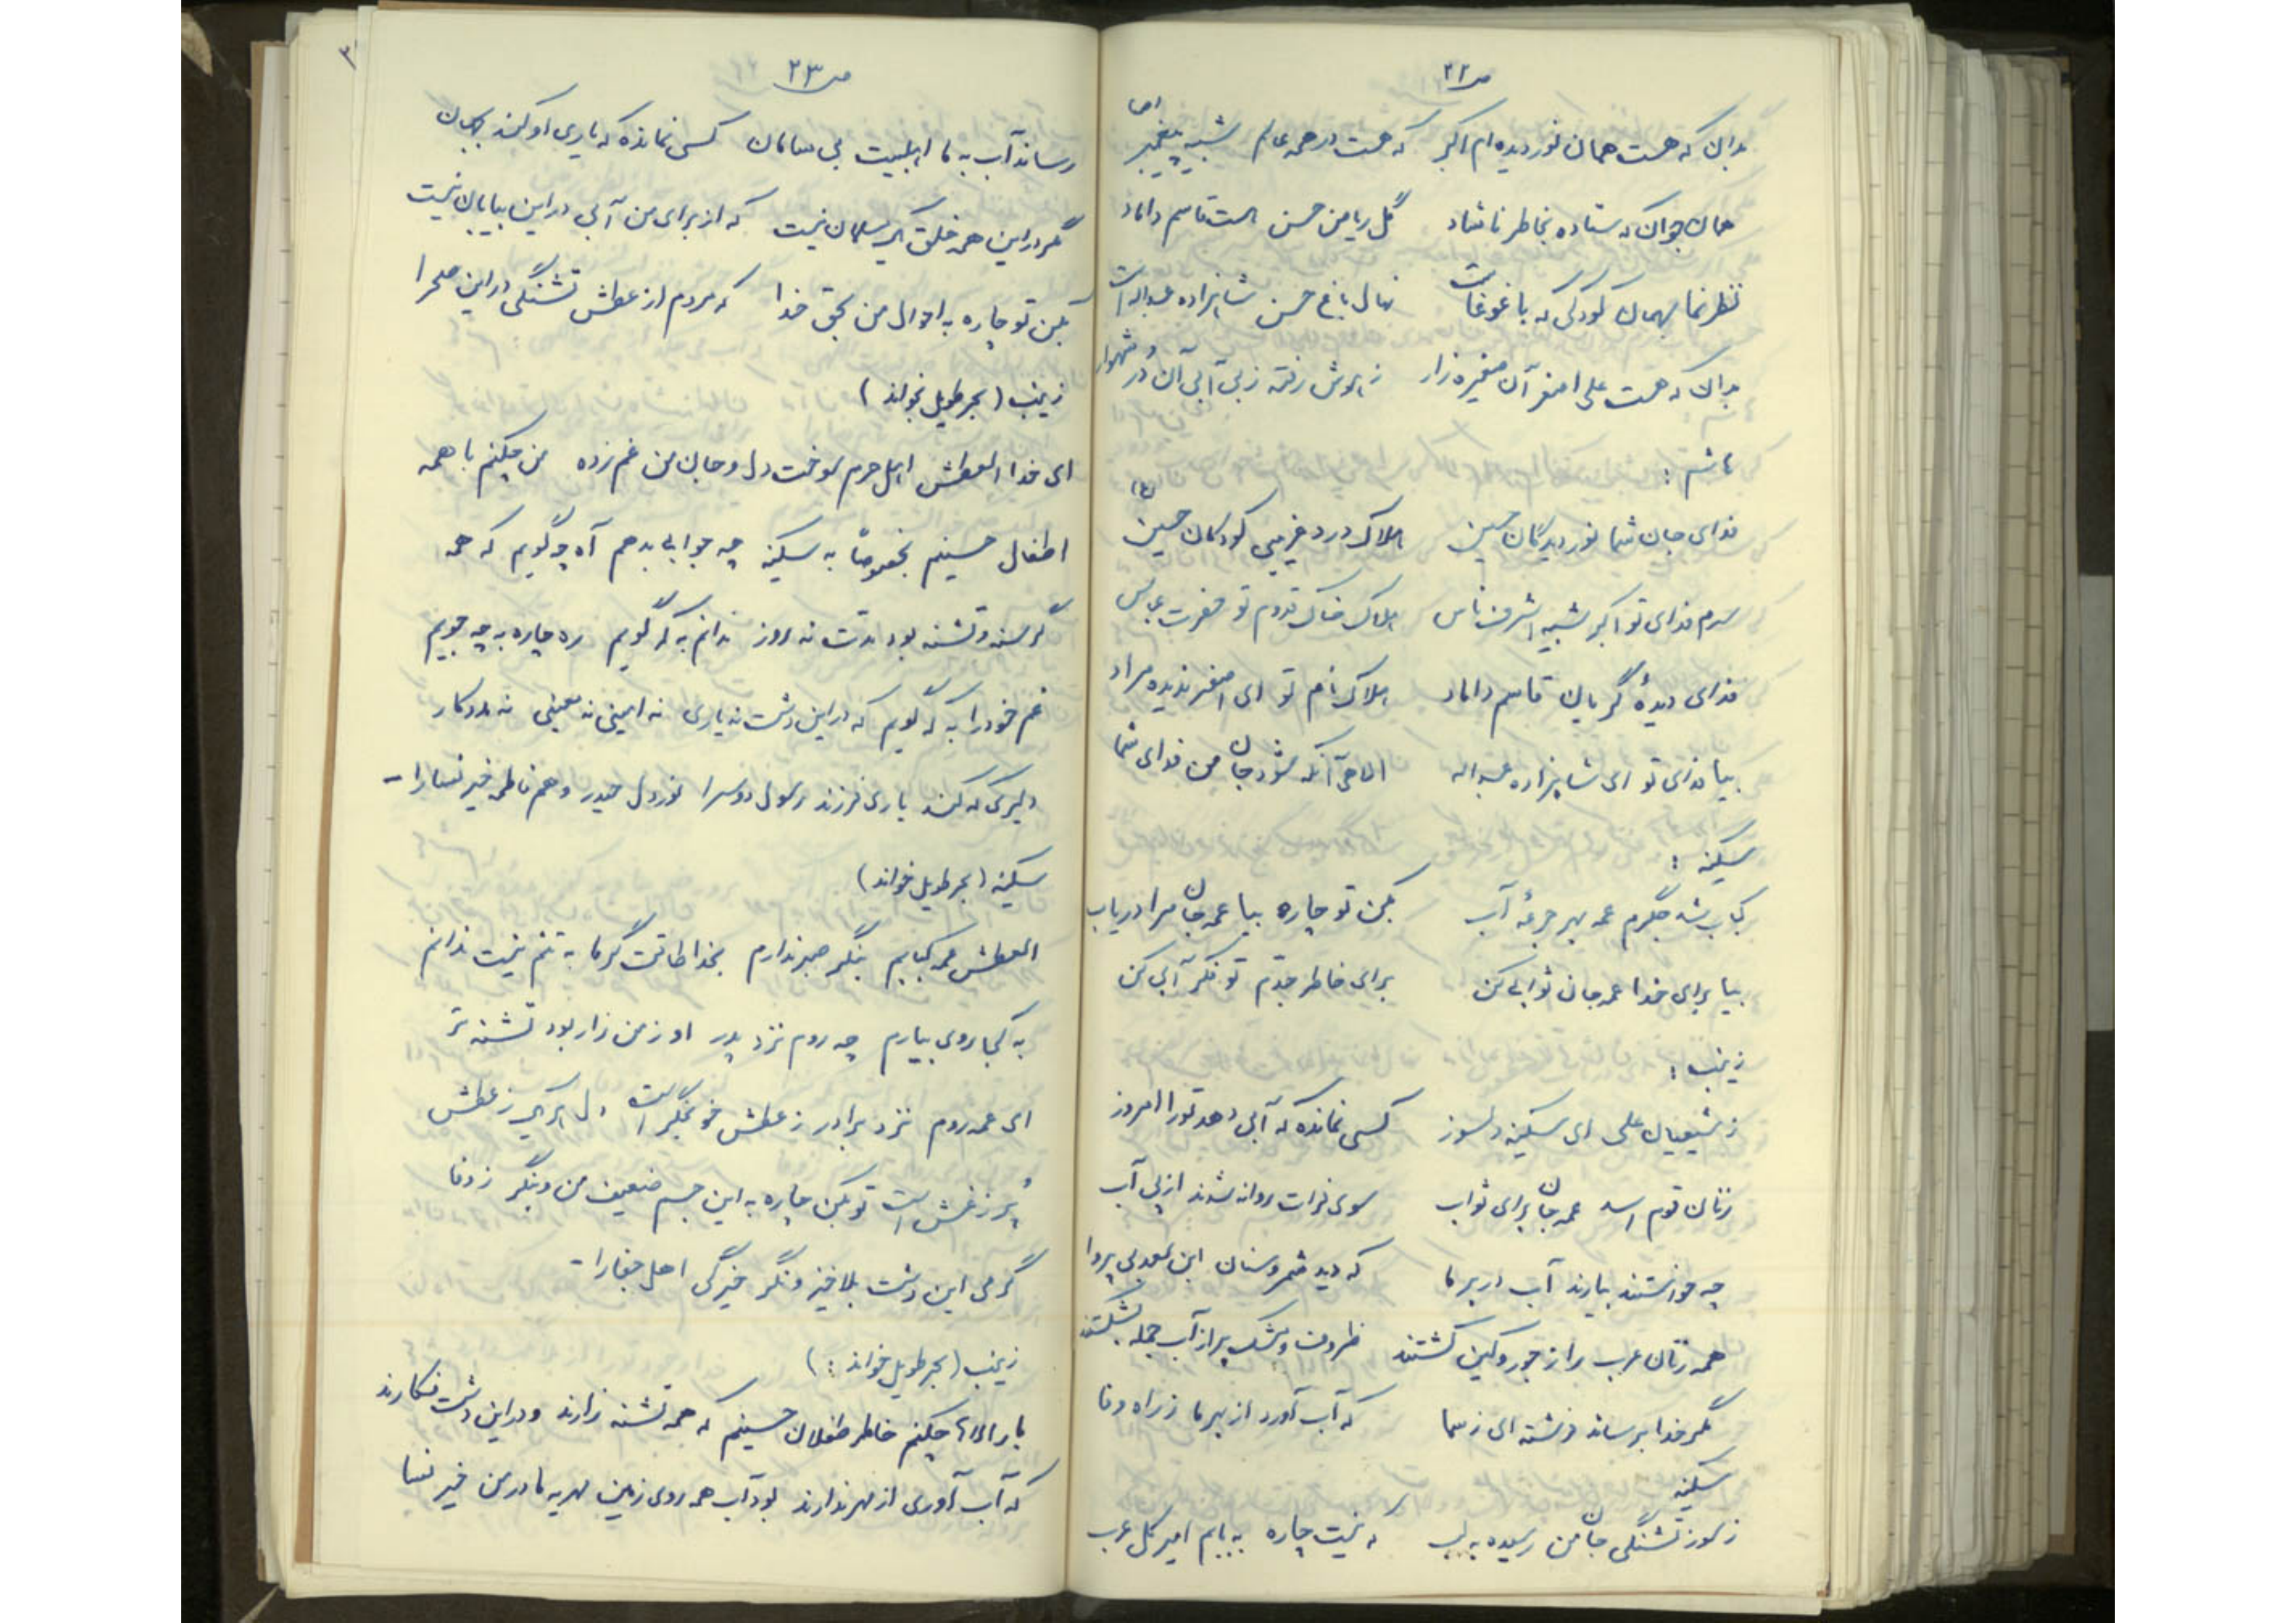 ص ۲۲
بدان که هست همان نور دیده ام اکبر که هست در همه عالم شبیه پیغمبر
همان جوان که ستاده بخاطر ناشاد گل ریاض حسن است قاسم داماد
نظر نما بهمان کودکی که با غوغاست نهال باغ حسن شاهزاده عبداله است
بدان که هست علی اصغر آن صغیره زار ز هوش رفته ز بی آبی آن دُر شهوار
هاشم :
فدای جان شما نور دیدگان حسین هلاک درد غریبی کودکان حسین
سرم فدای تو اکبر شبیه اشرف ناس هلاک خاک قدوم تو حضرت عباس
فدای دیدهٔ گریان قاسم داماد هلاک نام تو ای اصغر ندیده مراد
بیا فدای تو ای شاهزاده عبداله الاهی آنکه شود جان من فدای شما
سکینه :
کباب شد جگرم عمه بهر جرعهٔ آب بکن تو چاره بیا عمه جان مرا دریاب
بیا برای خدا عمه جان ثوابی کن برای خاطر جدّم تو فکر آبی کن
زینب :
ز شیعیان علی ای سکینه دلسوز کسی نمانده که آبی دهد تو را امروز
زنان قوم اسد عمه جان برای ثواب سوی فرات روانه شدند از پی آب
چه خواستند بیارند آب در بر ما که دید شمر و سنان ابن سعد بی پروا
همه زنان عرب را ز جور و کین کشتند ظروف و مشک پر از آب جمله بشکستند
مگر خدا برساند فرشته ای ز سما که آب آورد از بهر ما ز راه وفا
سکینه
ز سوز تشنگی جان من رسیده به لب که نیست چاره به بابم امیر کل عرب
ص ۲۳
رساند آب به ما اهلبیت بی سامان کسی نمانده که یاری او کند بجهان
مگر در این همه خلق یک مسلمان نیست که از برای من آبی در این بیابان نیست
بکن تو چاره به احوال من بحق خدا که مردم از عطش تشنگی در این صحرا
زینب (بحر طویل بخواند)
ای خدا العطش اهل حرم سوخت دل و جان من غم زده من چکنم با همه
اطفال حسینم بخصوصاً به سکینه چه جوابی بدهم آه چگویم که همه
گرسنه و تشنه بود مدت نه روز ندانم به که گویم ره چاره به چه جویم
غم خود را به که گویم که در این دشت نه یاری نه امینی نه معینی نه مددکار
دلیری که کند یاری فرزند رسول دوسرا نور دل حیدر و هم فاطمه خیر نسا را -
سکینه (بحر طویل خواند)
العطش عمه کبابم بنگر صبر ندارم بخدا طاقت گرما به تنم نیست ندانم
به کجا روی بیارم چه روم نزد پدر او ز من زار بود تشنه تر
ای عمه روم نزد برادر ز عطش خونجگر است دل اکبر ز عطش
پُر ز غش است تو بکن چاره به این جسم ضعیف من و بنگر ز وفا
گرمی این دشت بلا خیز و نگر خیرگی اهل جفا را -
زینب (بحر طویل خواند :)
بار الاها چکنم خاطر طفلان حسینم که همه تشنه زارند و در این دشت فکارند
که آب آوری از مهر ندارند بود آب همه روی زمین مهریه مادر من خیر نسا